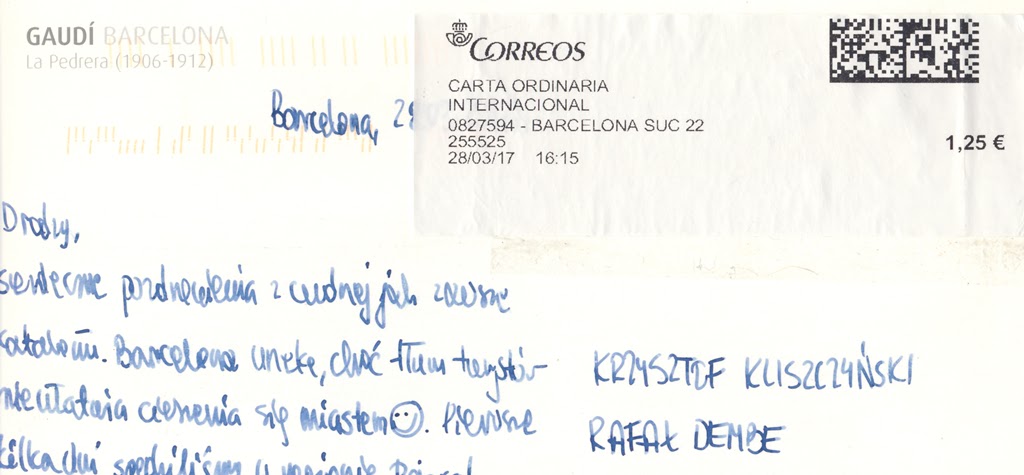 GAUDÍ BARCELONA
La Pedrera (1906-1912)
CORREOS
CARTA ORDINARIA
INTERNACIONAL
0827594 - BARCELONA SUC 22
255525
28/03/17 16:15
1,25 €
Barcelona, 28
Drodzy,
serdeczne pozdrowienia z cudnej jak zawsze
Katalonii. Barcelona urzeka, choć tłum turystów
nie ułatwia cieszenia się miastem☺. Pierwsze
kilka dni spędziliśmy w
KRZYSZTOF KLISZCZYŃSKI
RAFAŁ DEMBE